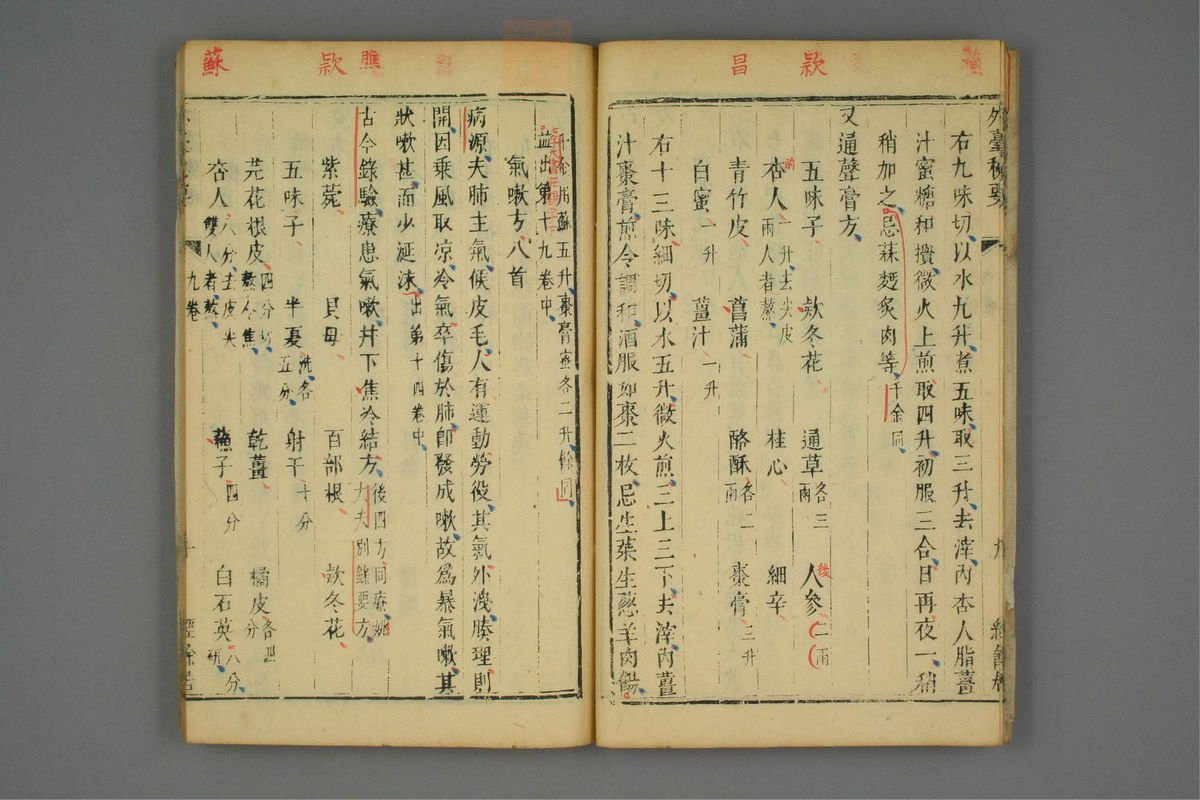 蘇 款 昌
外臺秘要
右九味切以水九升煮五味取三升去滓內杏人脂薑
汁蜜糖和攪微火上煎取四升初服三合日再夜一稍
稍加之忌蒜麪炙肉等千金同
又通聲膏方
五味子 款冬花 通草各三兩 人參二兩
杏人一升去尖皮兩人者熬 桂心 細辛
青竹皮 菖蒲 酪酥各二兩 棗膏三升
白蜜一升 薑汁一升
右十三味細切以水五升微火煎三上三下去滓內薑
汁棗膏煎令調和酒服如棗二枚忌生菜生蔥羊肉餳
五升棗膏蜜各二升餘同
並出第十九卷中
氣嗽方八首
病源夫肺主氣候皮毛人有運動勞役其氣外洩腠理則
開因乘風取凉冷氣卒傷於肺即發成嗽故爲暴氣嗽其
狀嗽甚而少涎沫出第十四卷中
古今錄驗療患氣嗽并下焦冷結方後四方同療姚大夫別錄要方
紫菀 貝母 百部根 款冬花
五味子 半夏洗各五分 射干十分
芫花根皮四分切熬令焦 乾薑 橘皮各四分
杏人八分去皮尖雙人者熬 蘇子四分 白石英八分研
九卷